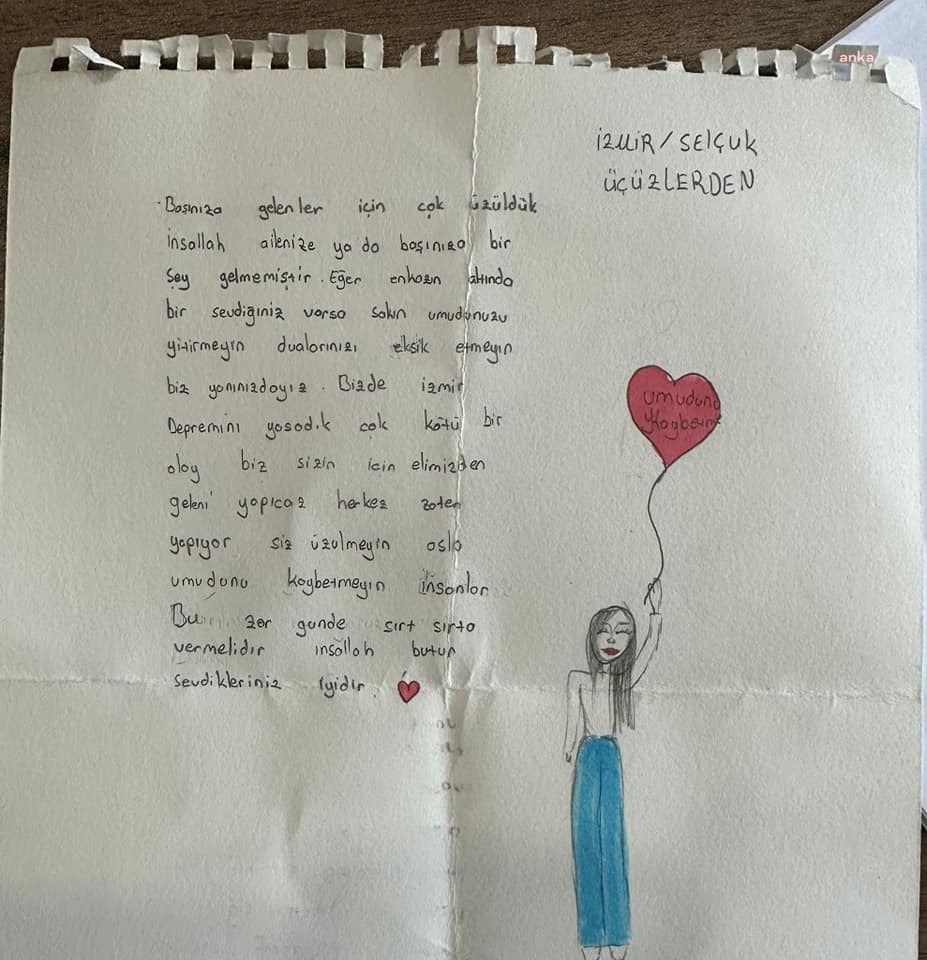 anka
İZMİR / SELÇUK
ÜÇÜZLERDEN
Başınıza gelenler için çok üzüldük
insallah ailenize ya da başınıza bir
Şey gelmemiştir. Eğer enkazın altında
bir sevdiğiniz varsa sakın umudunuzu
yitirmeyin dualarınızı eksik etmeyin
biz yanınızdayız. Bizde izmir
Depremini yaşadık çok kötü bir
olay biz sizin için elimizden
geleni yapıcaz herkez zaten
yapıyor siz üzülmeyin asla
umudunu kaybetmeyin insanlar
Bu zor günde sırt sırta
vermelidir insallah butun
Sevdikleriniz iyidir.
umudunu
Kaybetme